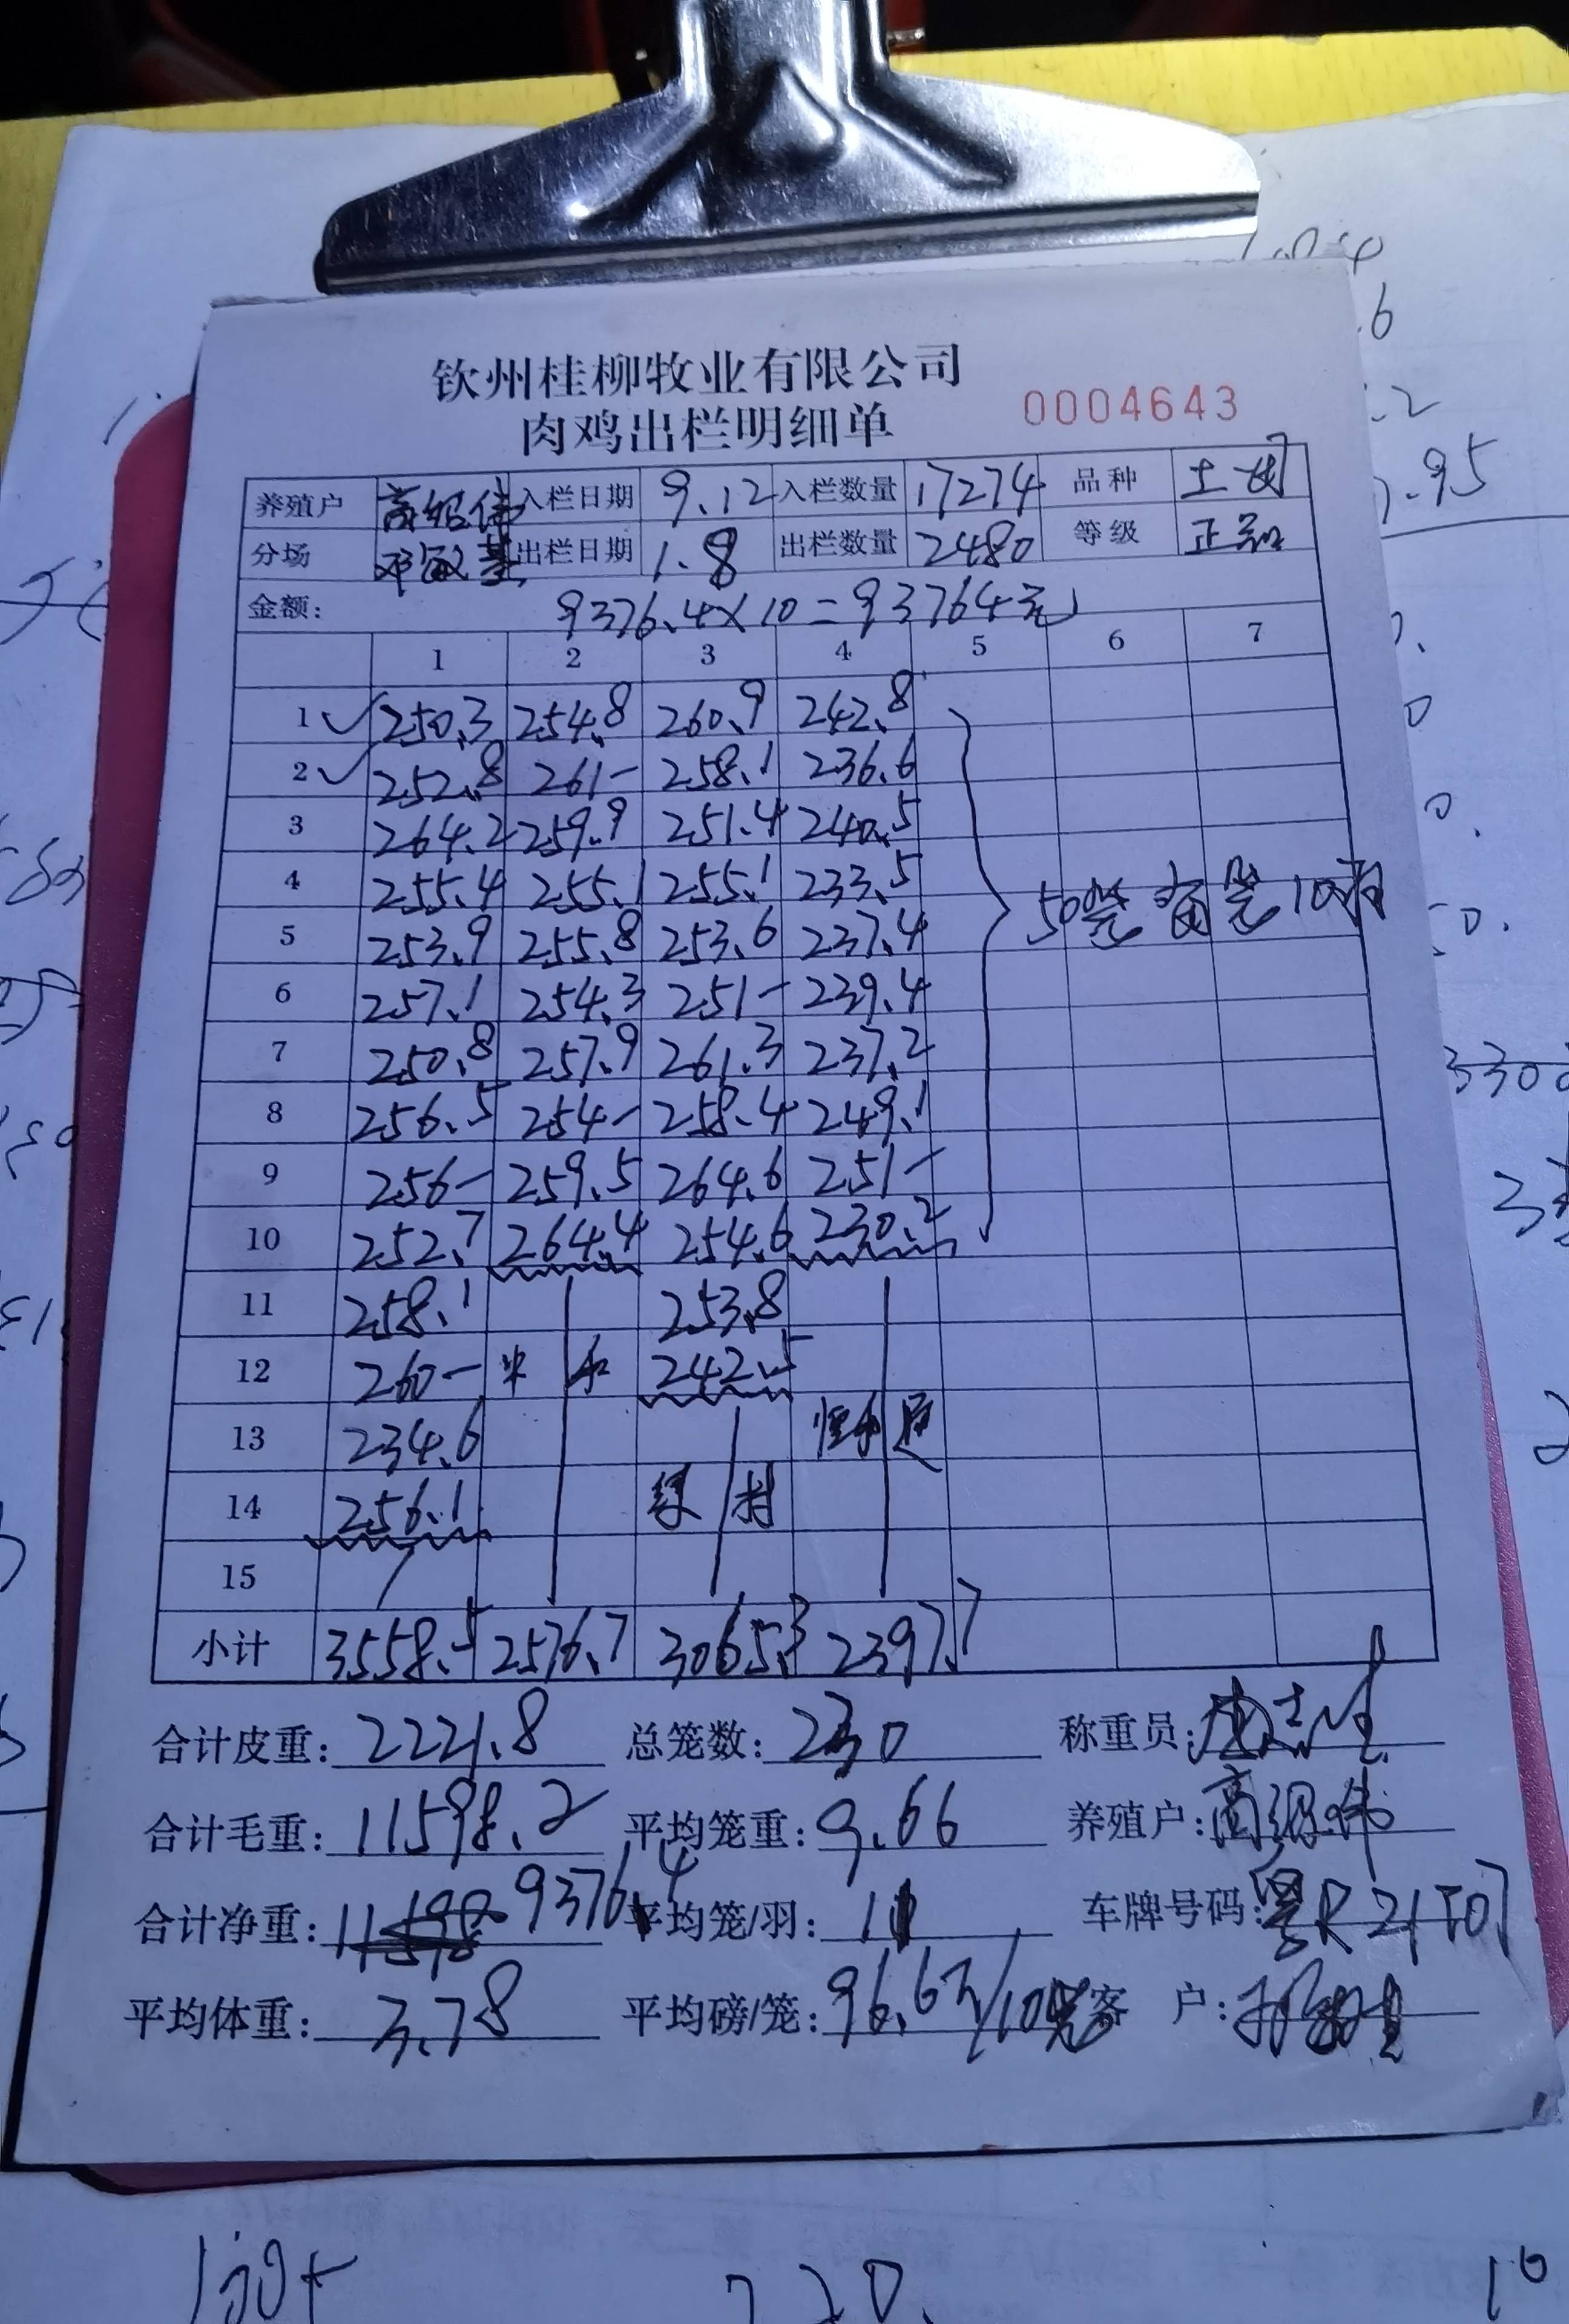 钦州桂柳牧业有限公司
肉鸡出栏明细单 0004643
养殖户 高绍伟 入栏日期 9.12 入栏数量 17274 品种
分场 邓敏基 出栏日期 1.8 出栏数量 2480 等级
金额: 9376.4×10=93764元
1 2 3 4 5 6 7
1 ✓ 250.3 254.8 260.9 242.8
2 ✓ 252.8 261- 258.1 236.6
3 264.2 259.9 251.4 240.5
4 255.4 255.1 255.1 233.5
5 253.9 255.8 253.6 237.4 50笼 笼10羽
6 257.1 254.3 251- 239.4
7 250.8 257.9 261.3 237.2
8 256.5 254- 258.4 249.1
9 256- 259.5 264.6 251-
10 252.7 264.4 254.6 230.2
11 258.1 253.8
12 260- 242.5
13 234.6
14 256.1 绿村
15
小计 3558.5 2576.7 3065.3 2397.7
合计皮重: 2221.8 总笼数: 230 称重员:
合计毛重: 11598.2 平均笼重: 9.66 养殖户: 高绍伟
合计净重: 9376.4 平均笼/羽: 11 车牌号码:
平均体重: 3.78 平均磅/笼: 96.6斤/10笼 客 户: